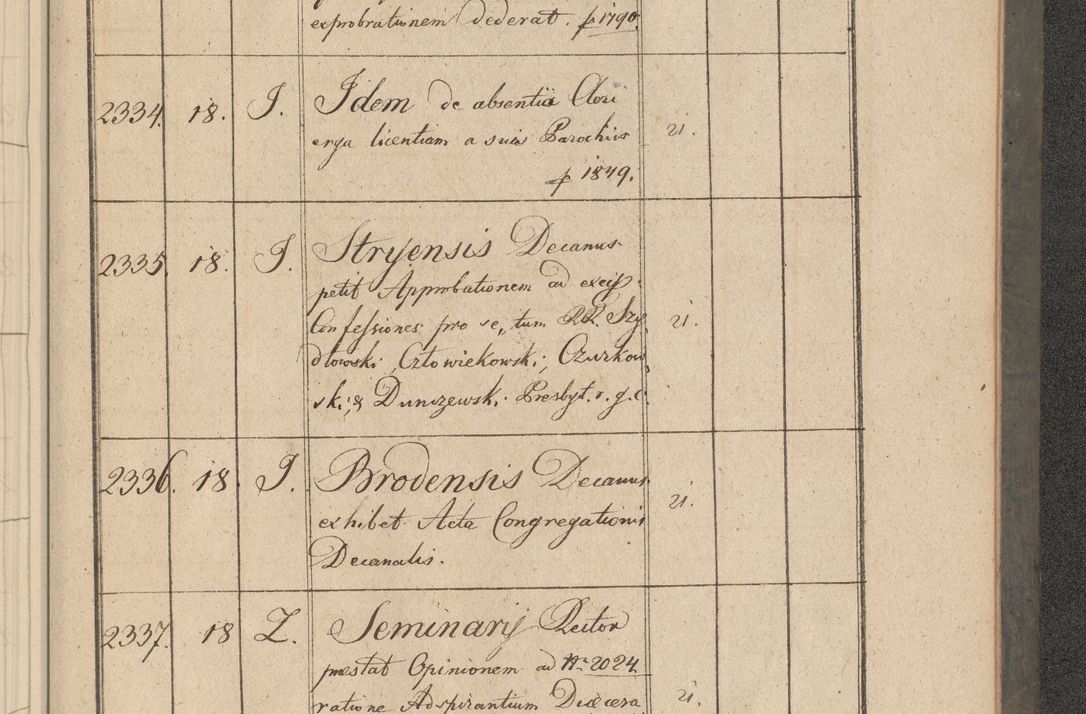 exprobrationem dederat. p 1790.
2334. 18. J. Idem de absentiâ Cleri
erga licentiam a suis Parochiis 21.
p 1849.
2335. 18. J. Stryensis Decanus
petit Approbationem ad excip.
Confessiones pro se, tum RR. Szy 21.
dłowski, Człowiekowski, Czurkow
ski, & Dunczewski Presbyt. r. g. c.
2336. 18. J. Brodensis Decanus
exhibet Acta Congregationis 21.
Decanalis.
2337. 18 Z. Seminarij Rector
prestat Opinionem ad Nr. 2024.
ratione Adspirantium Dioecesa 21.